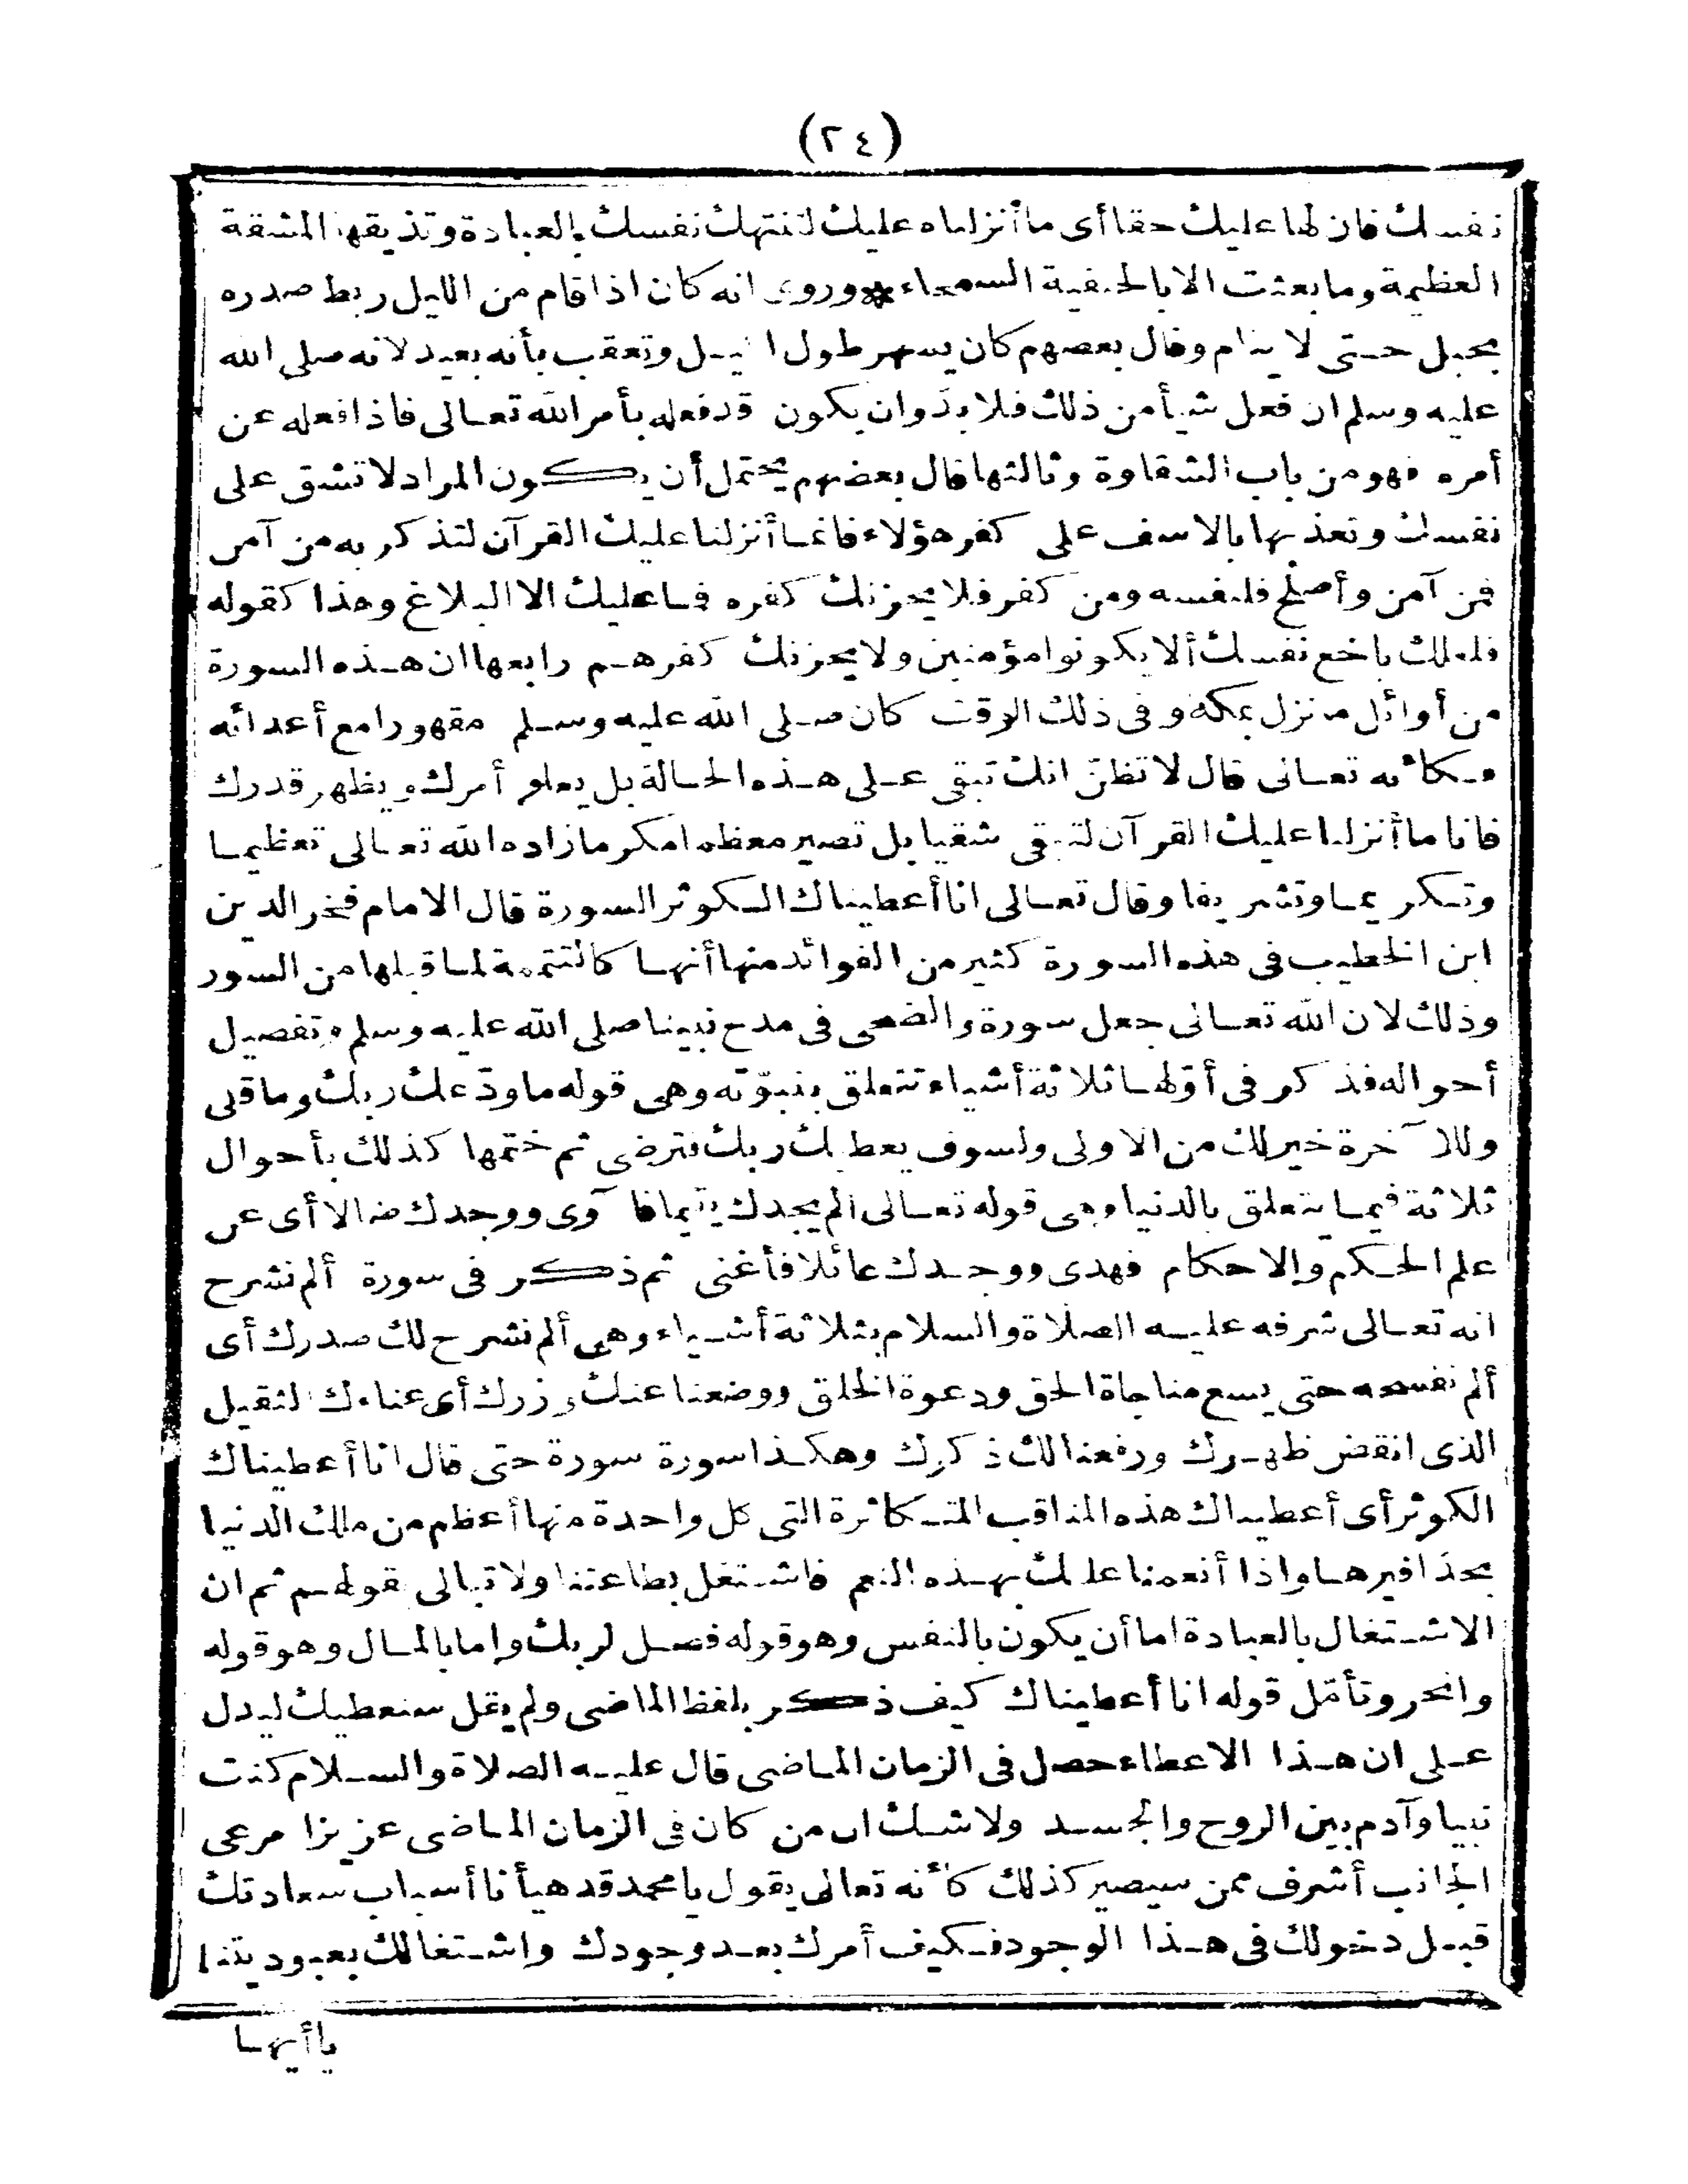 (٢٤)
نفسك فان لها عليك حقا أى ما أنزلناه عليك لتنتهك نفسك بالعبادة وتذيقها المشقة
العظيمة وما بعثت الا بالحنيفية السمحاء * وروى انه كان اذا قام من الليل ربط صدره
بحبل حتى لا ينام وقال بعضهم كان يسهر طول الليل وتعقب بأنه بعيد لانه صلى الله
عليه وسلم ان فعل شيأ من ذلك فلا بدّ وان يكون قد فعله بأمر الله تعالى فاذا فعله عن
أمره فهو من باب الشقاوة وثالثها قال بعضهم يحتمل أن يكون المراد لا تشق على
نفسك وتعذبها بالاسف على كفر هؤلاء فانما أنزلنا عليك القرآن لتذكر به من آمن
فمن آمن وأصلح فلنفسه ومن كفر فلا يحزنك كفره فما عليك الا البلاغ وهذا كقوله
فلعلك باخع نفسك ألا يكونوا مؤمنين ولا يحزنك كفرهم رابعها ان هذه السورة
من أوائل ما نزل بمكة وفى ذلك الوقت كان صلى الله عليه وسلم مقهورا مع أعدائه
فكأنه تعالى قال لا تظنّ انك تبقى على هذه الحالة بل يعلو أمرك ويظهر قدرك
فانا ما أنزلنا عليك القرآن لتبقى شقيا بل تصير معظما مكرما زاده الله تعالى تعظيما
وتكريما وتشريفا وقال تعالى انا أعطيناك الكوثر السورة قال الامام فخر الدين
ابن الخطيب فى هذه السورة كثير من الفوائد منها أنها كالتتمة لما قبلها من السور
وذلك لان الله تعالى جعل سورة والضحى فى مدح نبينا صلى الله عليه وسلم وتفصيل
أحواله فذكر فى أوّلها ثلاثة أشياء تتعلق بنبوّته وهى قوله ما ودّعك ربك وما قلى
وللآخرة خير لك من الاولى ولسوف يعطيك ربك فترضى ثم ختمها كذلك بأحوال
ثلاثة فيما يتعلق بالدنيا وهى قوله تعالى ألم يجدك يتيما فآوى ووجدك ضالا أى عن
علم الحكم والاحكام فهدى ووجدك عائلا فأغنى ثم ذكر فى سورة ألم نشرح
انه تعالى شرفه عليه الصلاة والسلام بثلاثة أشياء وهى ألم نشرح لك صدرك أى
ألم نفسحه حتى يسع مناجاة الحق ودعوة الخلق ووضعنا عنك وزرك أى عناءك الثقيل
الذى انقض ظهرك ورفعنا لك ذكرك وهكذا سورة سورة حتى قال انا أعطيناك
الكوثر أى أعطيناك هذه المناقب المتكاثرة التى كل واحدة منها أعظم من ملك الدنيا
بحذافيرها واذا أنعمنا عليك بهذه النعم فاشتغل بطاعتنا ولا تبالى بقولهم ثم ان
الاشتغال بالعبادة اما أن يكون بالنفس وهو قوله فصل لربك واما بالمال وهو قوله
وانحر وتأمّل قوله انا أعطيناك كيف ذكر بلفظ الماضى ولم يقل سنعطيك ليدل
على ان هذا الاعطاء حصل فى الزمان الماضى قال عليه الصلاة والسلام كنت
نبيا وآدم بين الروح والجسد ولا شك ان من كان فى الزمان الماضى عزيزا مرعى
الجانب أشرف ممن سيصير كذلك كأنه تعالى يقول يا محمد قد هيأنا أسباب سعادتك
قبل دخولك فى هذا الوجود فكيف أمرك بعد وجودك واشتغالك بعبوديتنا
يا أيها